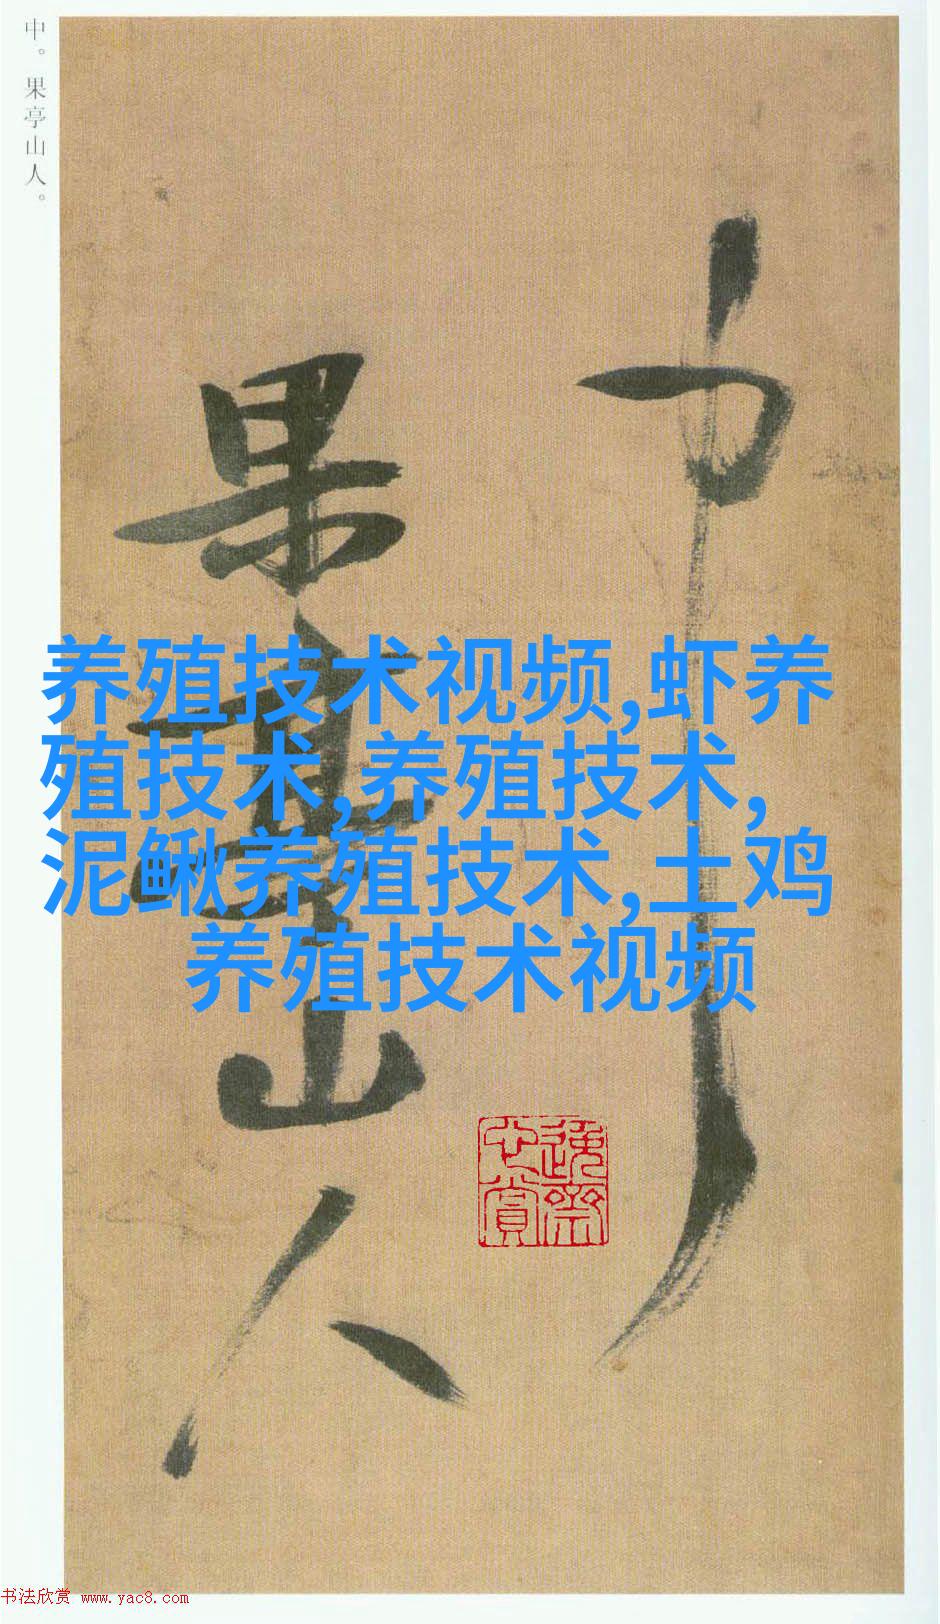 中。果亭山人。
中
果亭山人
养殖技术视频,虾养
殖技术,养殖技术,
泥鳅养殖技术,土鸡
养殖技术视频
逸斋
心赏
书法欣赏 www.yac8.com